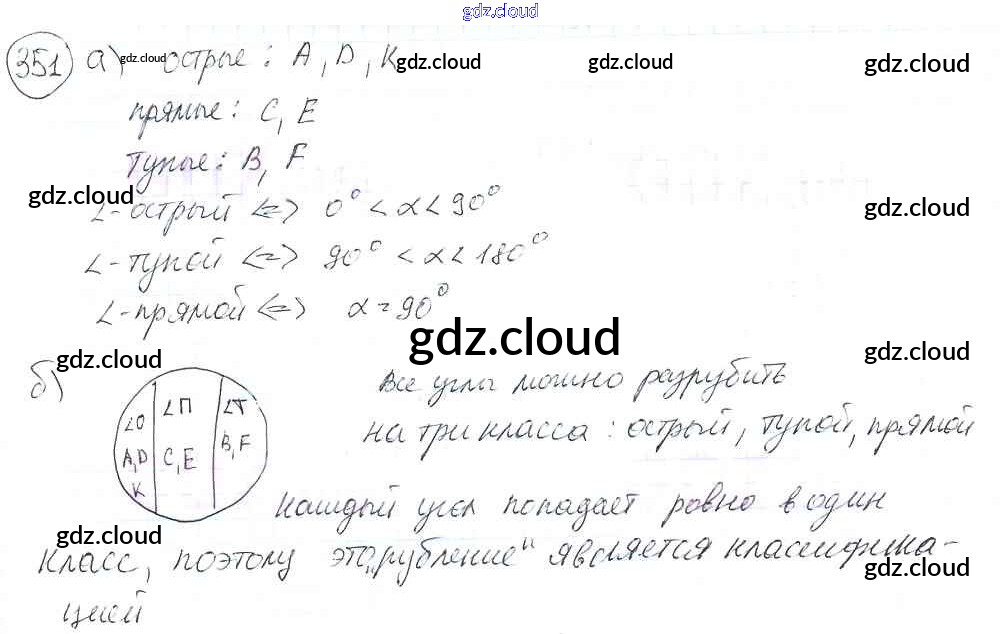 gdz.cloud
351 а) острые: A, D, K
gdz.cloud gdz.cloud gdz.cloud gdz.cloud
прямые: C, E
тупые: B, F
gdz.cloud gdz.cloud
∠-острый <=> 0° < α < 90°
∠-тупой <=> 90° < α < 180°
∠-прямой <=> α = 90°
gdz.cloud
gdz.cloud gdz.cloud
б) Все углы можно разрубить
на три класса: острый, тупой, прямой
∠О ∠П ∠Т
A, D C, E B, F
K
Каждый угол попадает ровно в один
gdz.cloud gdz.cloud
класс, поэтому это „рубление" является классифика-
gdz.cloud
цией